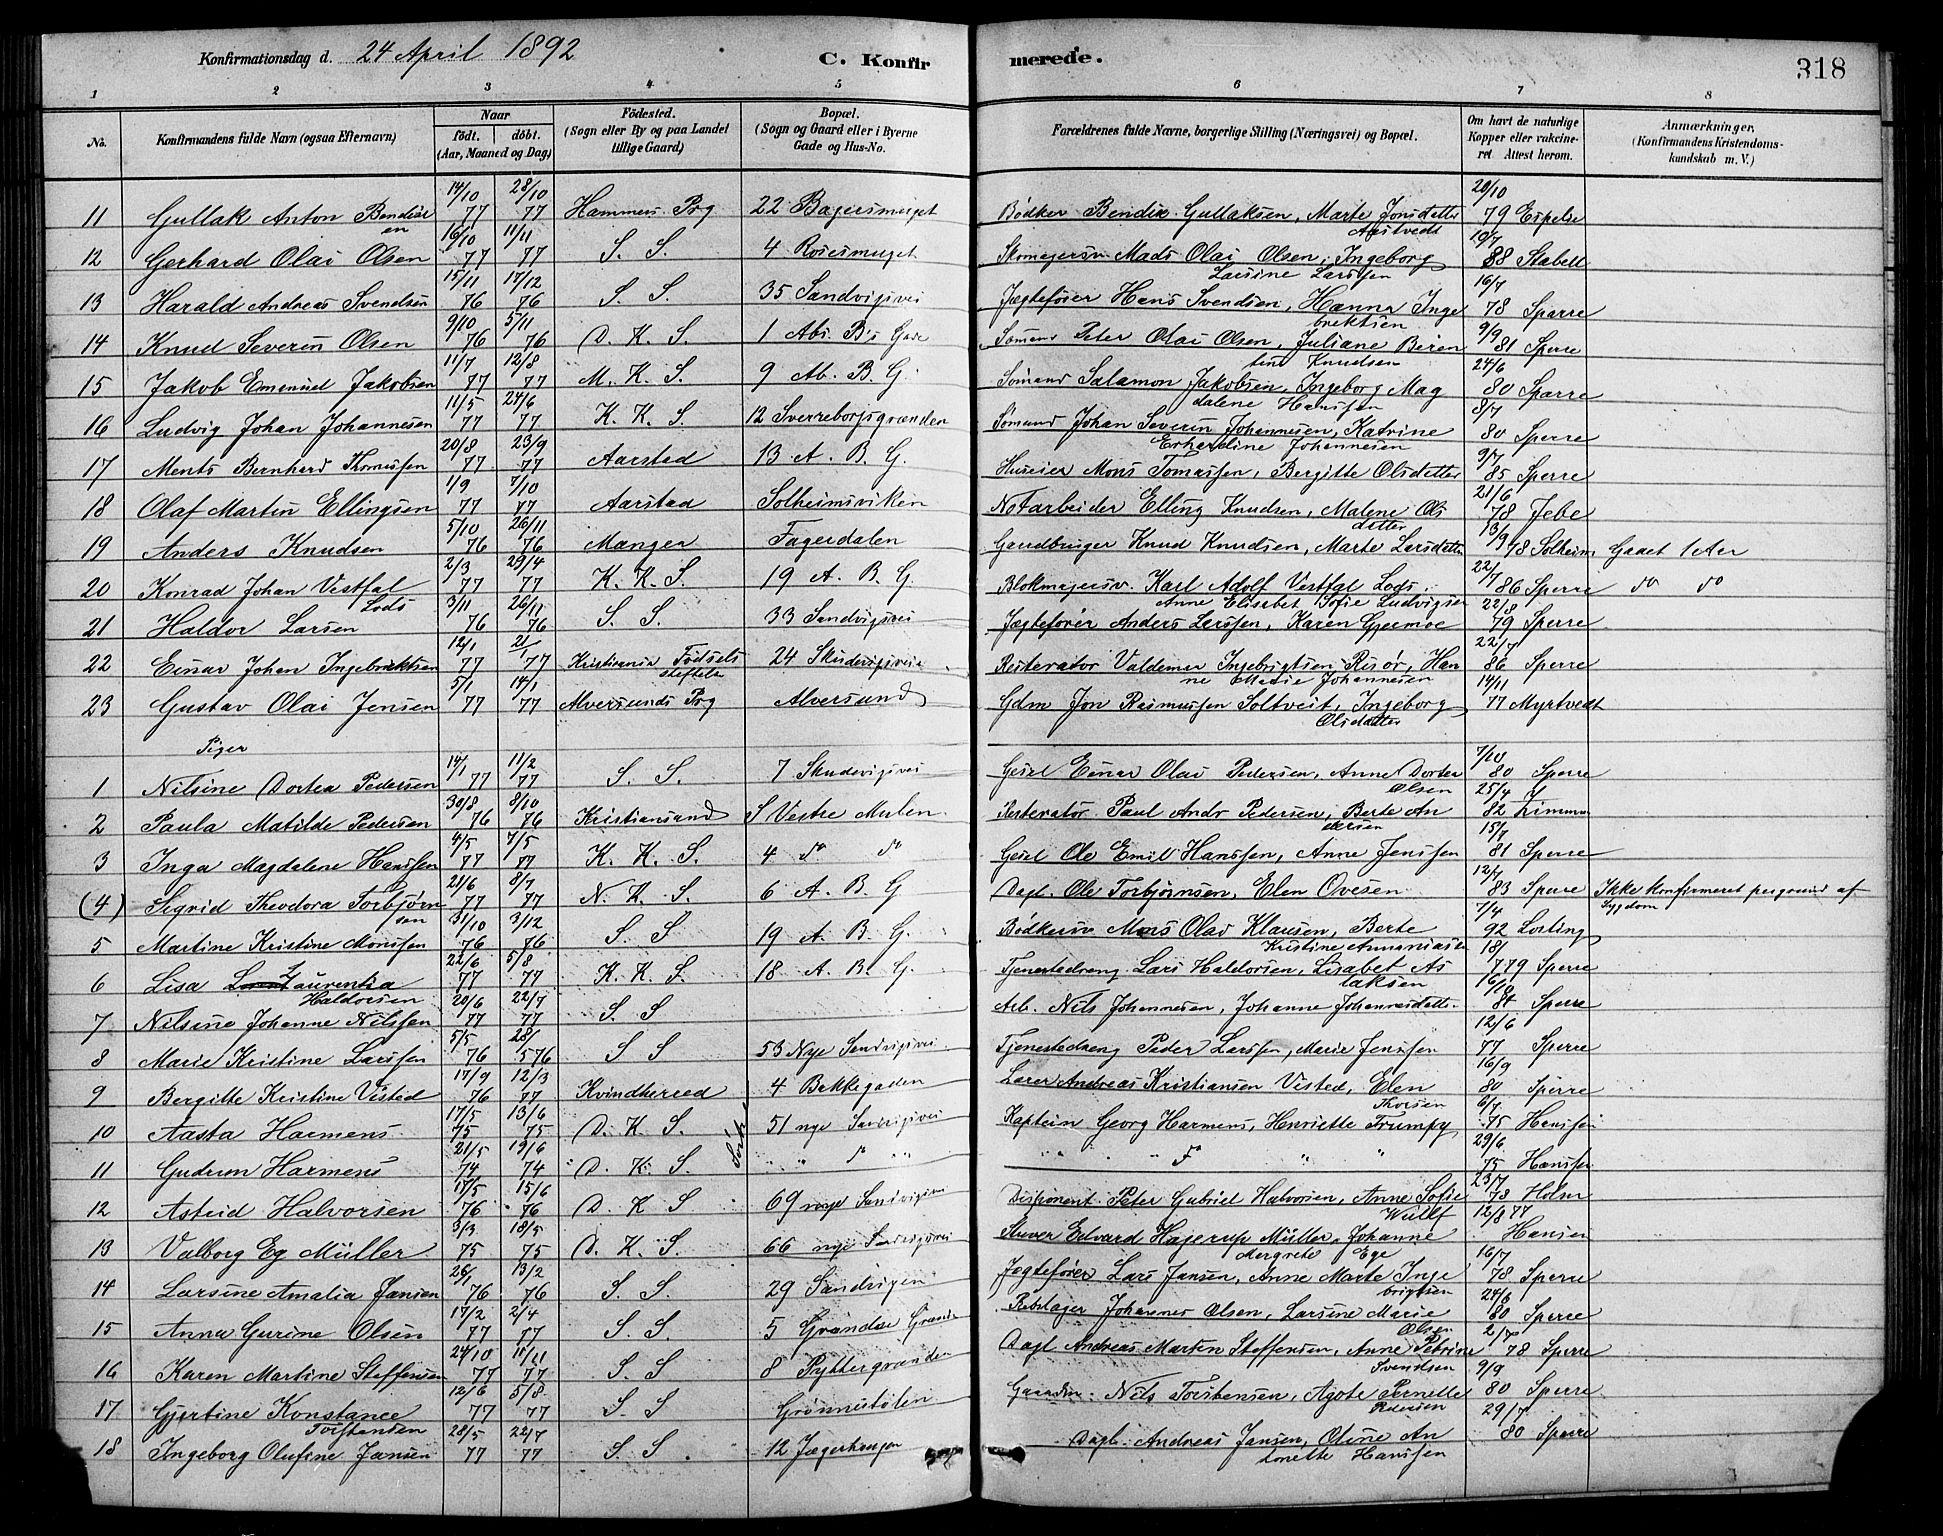 Konfirmationsdag d. 24 April 1892 C. Konfirmerede. 318
1 2 3 4 5 6 7 8
No. Konfirmandens fulde Navn (ogsaa Efternavn) Naar født. døbt. (Aar, Maaned og Dag) Fødested. (Sogn eller By og paa Landet tillige Gaard) Bopæl. (Sogn og Gaard eller i Byerne Gade og Hus-No. Forældrenes fulde Navne, borgerlige Stilling (Næringsvei) og Bopæl. Om havt de naturlige Kopper eller vakcineret Attest herom. Anmærkninger, (Konfirmandens Kristendomskundskab m. V.)
11 Gullak Anton Bendixen 14/10 77 28/10 77 Hammers Prg 22 Bødker Bendix Gullaksen, Marte Jonsdatter 20/10 79 Espelse
12 Gerhard Olai Olsen 16/10 77 11/11 77 S. S. 4 Rosesmuget Skomagersv Mads Olai Olsen, Ingeborg Larsine Larssen 19/7 88 Stabell
13 Harald Andreas Svendsen 15/11 76 17/12 76 S. S. 35 Sandvigsvei Jægtefører Hans Svendsen, Hanna Ingebrektsen 16/7 78 Sperre
14 Knud Severin Olsen 9/10 76 5/11 76 D. K. S. 1 Abs. B's Gade Sømand Peter Olai Olsen, Juliane Berentine Knudsen 9/9 81 Sperre
15 Jakob Emanuel Jakobsen 11/7 77 12/8 77 M. K. S. 9 Ab. B. G. Sømand Salamon Jakobsen, Ingeborg Magdalene Hanssen 24/6 80 Sperre
16 Ludvig Johan Johannesen 11/5 77 24/6 77 K. K. S. 12 Sverreborgsgrænden Sømand Johan Severin Johannesen, Katrine Johannesen 8/7 80 Sperre
17 Ments Bernhard Tomassen 20/8 77 23/9 77 Aarstad 13 A. B. G. Huseier Mons Tomassen, Bergitte Olsdatter 9/7 85 Sperre
18 Olaf Martin Ellingsen 1/9 77 7/10 77 Aarstad Solheimsviken Notarbeider Elling Knudsen, Malene Olsdatter 21/6 78 Jebe
19 Anders Knudsen 5/10 76 26/11 76 Manger Fagerdalen Gaardbruger Knud Knudsen, Marte Larsdatter 13/9 78 Solheim Gaaet 1 Aar
20 Konrad Johan Vestfal Lods 2/3 77 29/4 77 K. K. S. 19 A. B. G. Blokmagersv. Karl Adolf Vestfal Lods. Anne Elisabet Sofie Ludvigsen 22/7 86 Sperre do do
21 Haldor Larsen 3/11 76 26/11 76 S. S. 33 Sandvigsvei Jægtefører Anders Larssen, Karen Gjermoe 22/8 79 Sperre
22 Einar Johan Ingebrektsen 12/1 77 21/ 77 Kristiania Fødselsstiftelse 24 Skudevigsvei Resterator Valdemar Ingebrigtsen Risør, Hanne Marie Johannesen 22/7 86 Sperre
23 Gustav Olai Jensen 5/1 77 14/1 77 Alversunds Prg Alversund Gdm Jon Rasmussen Soltveit, Ingeborg Olsdatter 14/11 77 Myrtvedt
Piger
1 Nilsine Dortea Pedersen 14/1 77 11/2 77 S. S. 7 Skudevigsvei Gesel Einar Olai Pedersen, Anne Dortea Olsen 7/10 80 Sperre
2 Paula Matilde Pedersen 30/8 76 8/10 76 Kristiansund 5 Vestre Mulen Resterator Paul Andr Pedersen, Berte Andersen 25/4 82
3 Inga Magdalene Hanssen 4/5 77 7/5 77 K. K. S. 4 do do Gesel Ole Emil Hanssen, Anne Jenssen 15/7 81 Sperre
(4) Sigrid Theodora Torbjørnsen 21/6 77 8/7 77 N. K. S. 6 A. B. G Dagl. Ole Torbjørnsen, Elen Ovesen 12/7 83 Sperre Ikke konfirmeret pergrund af Sygdom
5 Martine Kristine Monssen 31/10 76 3/12 76 S. S 19 A. B. G. Bødkersv Mons Olav Klausen, Berte Kristine Annaniasen 7/4 92
6 Lisa Laurentia Haldorsen 22/6 77 5/8 77 K. K. S. 18 A. B. G Tjenestedreng Lars Haldorsen, Lisabet Aslaksen 18/7 79 Sperre
7 Nilsine Johanne Nilssen 20/6 77 22/7 77 S. S Arb. Nils Johannesen, Johanne Johannesdatter 16/10 84 Sperre
8 Marie Kristine Larssen 5/5 76 28/5 76 S S 53 Nye Sandvigsvei Tjenestedreng Peder Larssen, Marie Jenssen 12/6 77 Sperre
9 Bergitte Kristine Visted 17/9 76 12/3 77 Kvindherred 4 Bekkegaden Lærer Andreas Kristiansen Visted, Elen Thorsen 16/9 80 Sperre
10 Aasta Harmens 17/5 75 13/6 75 D. K. S. 51 nye Sandvigsvei Kaptein Georg Harmens, Henriette Trumpy 6/7 75 Hanssen
11 Gudrun Harmens 21/5 74 19/6 74 D. K. S " " do " " " " do " " 29/6 75 Hanssen
12 Astrid Halvorsen 17/5 76 15/6 76 D. K S 69 nye Sandvigsvei Disponent Peter Gabriel Halvorsen, Anne Sofie Wulff 23/7 78 Holm
13 Valborg Eg Müller 3/3 75 18/5 75 D. K. S. 66 nye Sandvigsvei Stuver Edvard Hagerup Müller, Johanne Margrete Ege 12/8 77 Hansen
14 Larsine Amalia Jansen 26/1 76 13/2 76 S. S. 29 Sandvigen Jægtefører Lars Jansen, Anne Marte Ingebrigtsen 16/7 78 Sperre
15 Anna Gurine Olsen 17/2 77 2/4 77 S. S. 5 Rebslager Johannes Olsen, Larsine Marie Olsen 24/6 80 Sperre
16 Karen Martine Steffensen 24/10 77 11/11 77 S. S 8 Ryttergrænden Dagl Andreas Martin Steffensen, Anne Petrine Svendsen 2/7 78 Sperre
17 Gjertine Konstance Torstensen 12/6 77 5/8 77 S. S Grønnestølen Nils Torstensen, Agote Pernelle Pedersen 9/9 80 Sperre
18 Ingeborg Olufine Jansen 28/5 77 22/7 77 S. S . 12 Dagl. Andreas Jansen, Oline Antonette Hanssen 29/7 80 Sperre